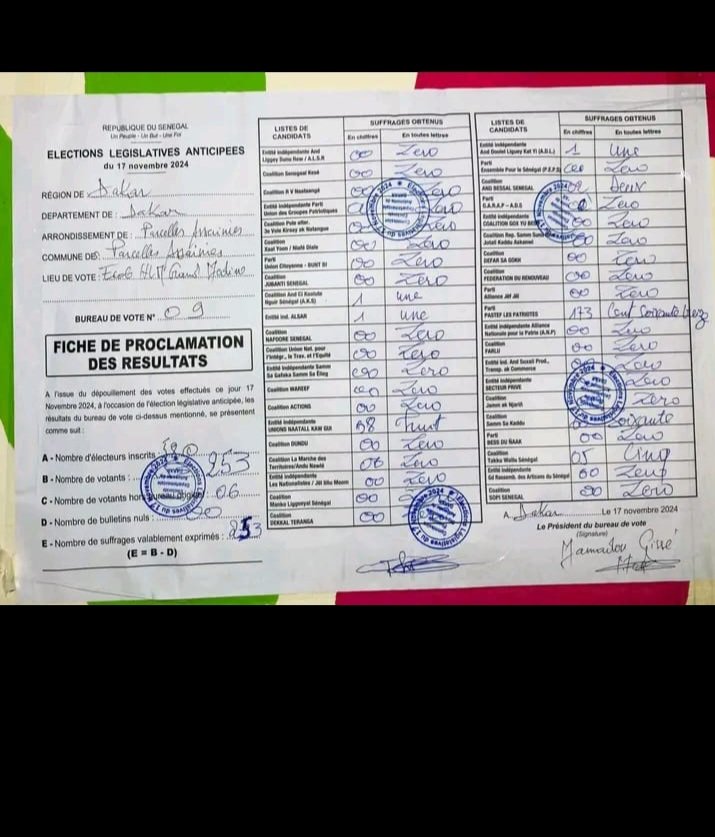 REPUBLIQUE DU SENEGAL
Un Peuple - Un But - Une Foi
ELECTIONS LEGISLATIVES ANTICIPEES
du 17 novembre 2024
RÉGION DE Dakar
DEPARTEMENT DE : Dakar
ARRONDISSEMENT DE : Parcelles Assainies
COMMUNE DE : Parcelles Assainies
LIEU DE VOTE : Ecole HLM Grand Médine
BUREAU DE VOTE N° 09
FICHE DE PROCLAMATION
DES RESULTATS
A l'issue du dépouillement des votes effectués ce jour 17
Novembre 2024, à l'occasion de l'élection législative anticipée, les
résultats du bureau de vote ci-dessus mentionné, se présentent
comme suit :
A - Nombre d'électeurs inscrits :
B - Nombre de votants : 253
C - Nombre de votants hors bureau : 06
D - Nombre de bulletins nuls : 00
E - Nombre de suffrages valablement exprimés : 253
(E = B - D)
LISTES DE CANDIDATS SUFFRAGES OBTENUS
En chiffres En toutes lettres
Entité indépendante And Liggey Sunu Rew / A.L.S.R 00 Zero
Coalition Senegaal Kesé 00 Zero
Coalition R V Naataangé 00 Zero
Entité Indépendante Parti Union des Groupes Patriotiques Zero
Coalition Pole alter. 3e Voie Kiraay ak Natangue Zero
Coalition Xaal Yoon / Nishi Diale 00 Zero
Parti Union Citoyenne - BUNT BI 00 Zero
Coalition JUBANTI SENEGAL 00 Zero
Coalition And Ci Koolute Nguir Sénégal (A.K.S) 1 une
Entité ind. ALSAR 1 une
Coalition NAFOORE SENEGAL 00 Zero
Coalition Union Nat. pour l'Intégr., le Trav. et l'Equité 00 Zero
Entité Indépendante Samm Sa Gafaka Samm Sa Ëllëg 00 Zero
Coalition WAREEF 00 Zero
Coalition ACTIONS 00 Zero
Entité indépendante UNIONS NAATALL KAW GUI 08 huit
Coalition DUNDU 00 Zero
Coalition La Marche des Territoires/Andu Nawlé Zero
Entité indépendante Les Nationalistes / Jël Liñu Moom 00 Zero
Coalition Manko Liggeeyal Sénégal 00
Coalition DEKKAL TERANGA 00
LISTES DE CANDIDATS SUFFRAGES OBTENUS
En chiffres En toutes lettres
Entité indépendante And Doolel Liguey Kat Yi (A.D.L.) 1 une
Parti Ensemble Pour le Sénégal (P.E.P.S) 00 Zero
Coalition AND BESSAL SENEGAL 02 deux
Parti G.A.R.A.P - A.D.S Zero
Entité indépendante COALITION GOX YU BEES 00 Zero
Coalition Rep. Samm Sunu Jotali Kaddu Askanwi 00 Zero
Coalition DEFAR SA GOKH 00 Zero
Coalition FEDERATION DU RENOUVEAU 00 Zero
Parti Alliance Jëf Jël 00 Zero
Parti PASTEF LES PATRIOTES 173 Cent Soixante treize
Entité indépendante Alliance Nationale pour la Patrie (A.N.P) 00 Zero
Coalition FARLU 00 Zero
Entité ind. And Suxali Prod., Transp. ak Commerce Zero
Entité indépendante SECTEUR PRIVE Zero
Coalition Jamm ak Njariñ Zero
Coalition Samm Sa Kaddu Soixante
Parti BESS DU NAAK 00 Zero
Coalition Takku Wallu Sénégal 05 Cinq
Entité indépendante Gd Rassemb. des Artisans du Sénégal 00 Zero
Coalition SOPI SENEGAL 00 Zero
A Dakar Le 17 novembre 2024
Le Président du bureau de vote
(Signature)
Mamadou Cissé